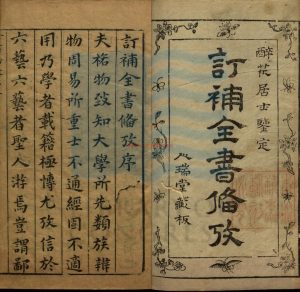 醉花居士鑒定
訂補全書備攷
瑞堂藏板
訂補全書備攷序
夫格物致知大學所先類族辨
物周易所重士不通經固不適
用乃學者載籍極博尤攷信於
六藝六藝者聖人游焉豈謂鄙